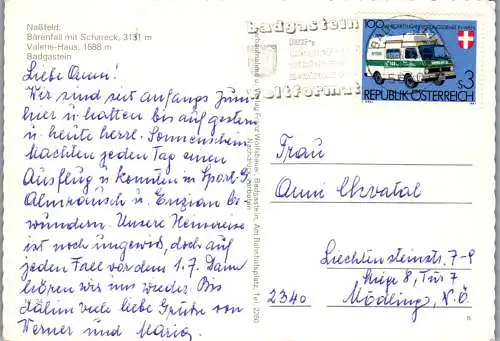 Naßfeld:
Bärenfall mit Schareck, 3131 m
Valerie-Haus, 1588 m
Badgastein
Liebe Anni!
Wir sind seit anfangs Juni
hier u. hatten bis auf gestern
u. heute herrl. Sonnenschein
Machten jeden Tag einen
Ausflug u. konnten in Sport-G.
Almrausch u. Enzian be
wundern. Unsere Heimreise
ist noch ungewiß, doch auf
jeden Fall vor dem 1.7. Dann
hören wir uns wieder. Bis
dahin viele liebe Grüße von
Werner und Maria
badgastein
weltformat
100 JAHRE
REPUBLIK ÖSTERREICH
S 3
Franz Wolfsbauer, Badgastein, Am Bahnhofplatz, Tel. 2380
Frau
Anni Chvatal
Liechtensteinstr. 7-9
Stiege 8, Tür 7
2340 Mödling, N.Ö.